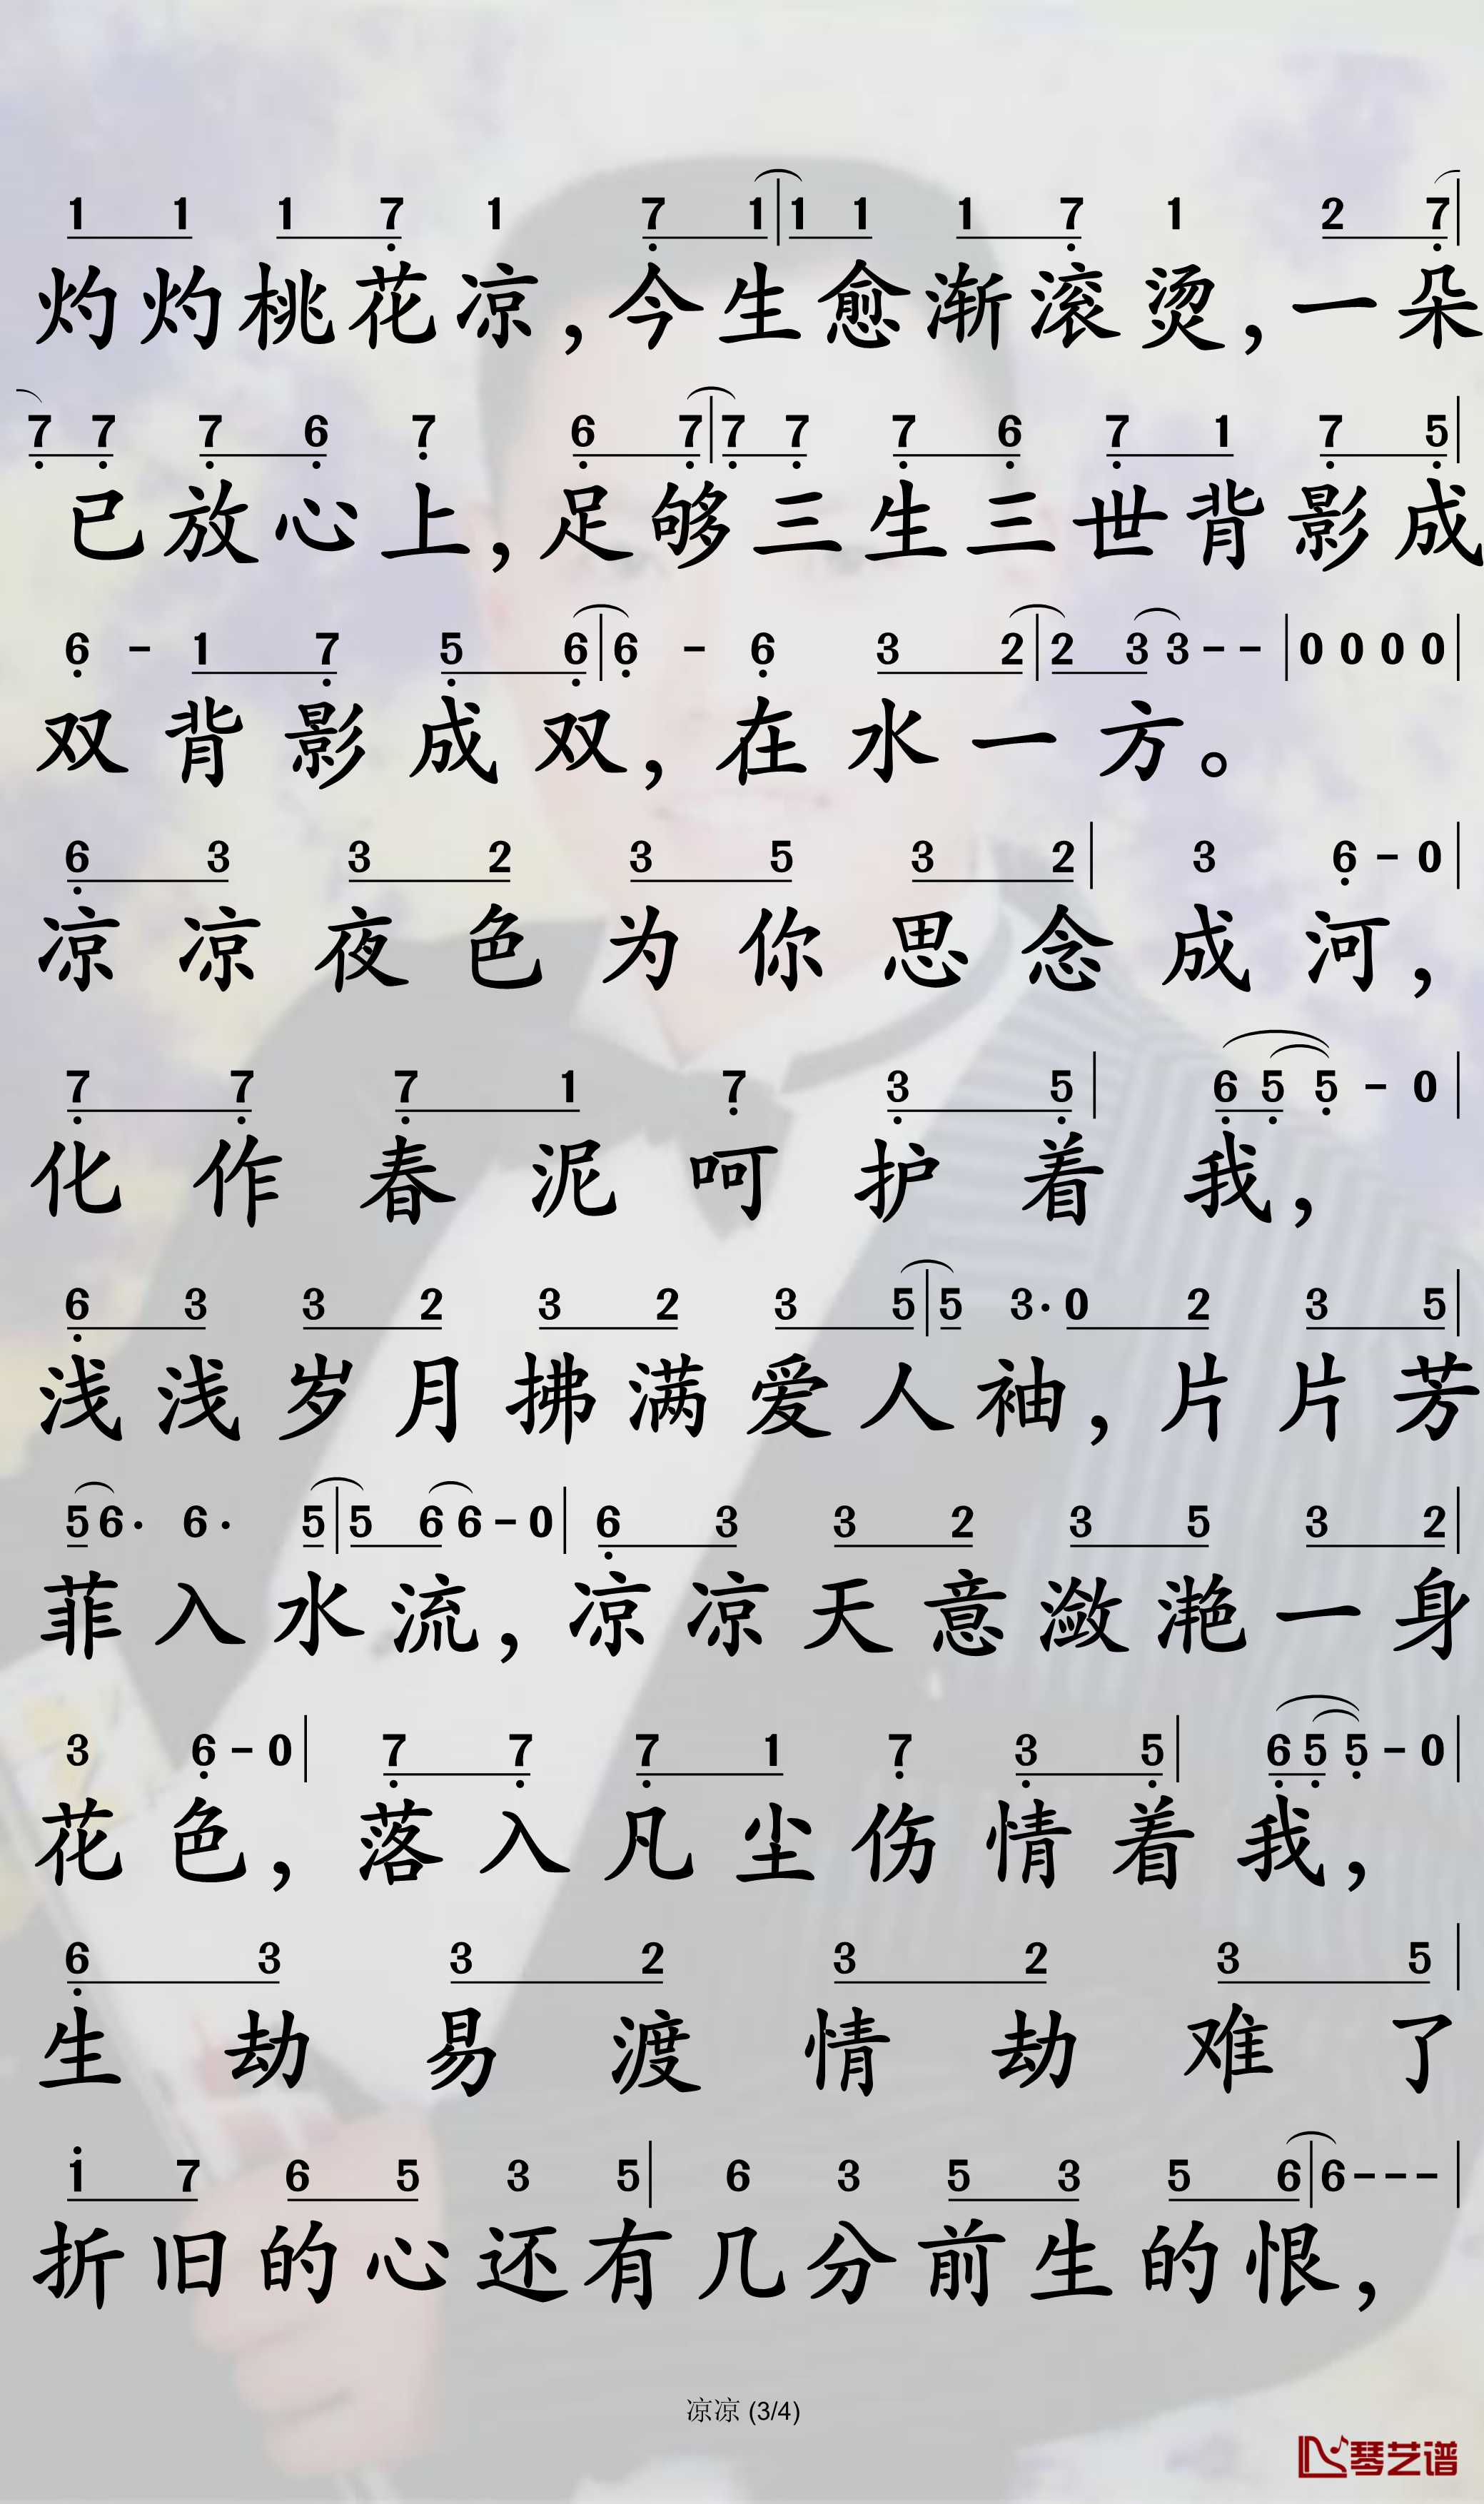 1 1 1 7 1 7 1|1 1 1 7 1 2 7|
灼灼桃花凉，今生愈渐滚烫，一朵
7 7 7 6 7 6 7|7 7 7 6 7 1 7 5|
已放心上，足够三生三世背影成
6 - 1 7 5 6|6 - 6 3 2|2 3 3 - - |0 0 0 0|
双背影成双，在水一方。
6 3 3 2 3 5 3 2| 3 6 - 0|
凉凉夜色为你思念成河，
7 7 7 1 7 3 5| 6 5 5 - 0|
化作春泥呵护着我，
6 3 3 2 3 2 3 5|5 3· 0 2 3 5|
浅浅岁月拂满爱人袖，片片芳
5 6· 6· 5|5 6 6 - 0| 6 3 3 2 3 5 3 2|
菲入水流，凉凉天意潋滟一身
3 6 - 0| 7 7 7 1 7 3 5| 6 5 5 - 0|
花色，落入凡尘伤情着我，
6 3 3 2 3 2 3 5|
生劫易渡情劫难了
1 7 6 5 3 5| 6 3 5 3 5 6|6 - - - |
折旧的心还有几分前生的恨，
凉凉 (3/4)
琴艺谱